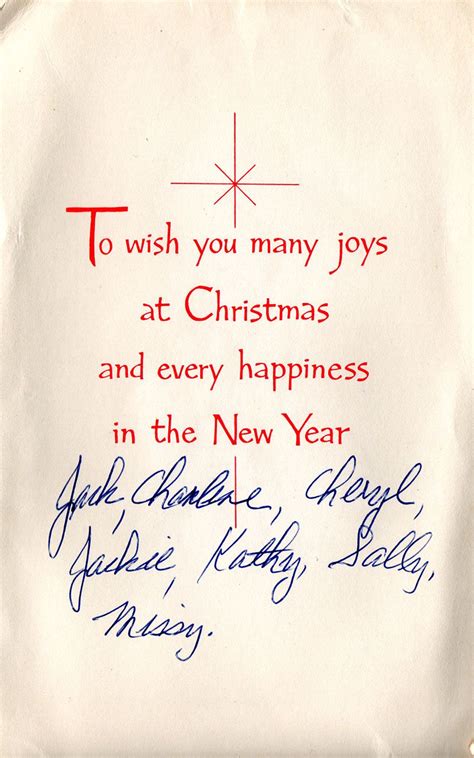 To wish you many joys
at Christmas
and every happiness
in the New Year
Jack, Charlene, Cheryl,
Jackie, Kathy, Sally,
Missy.